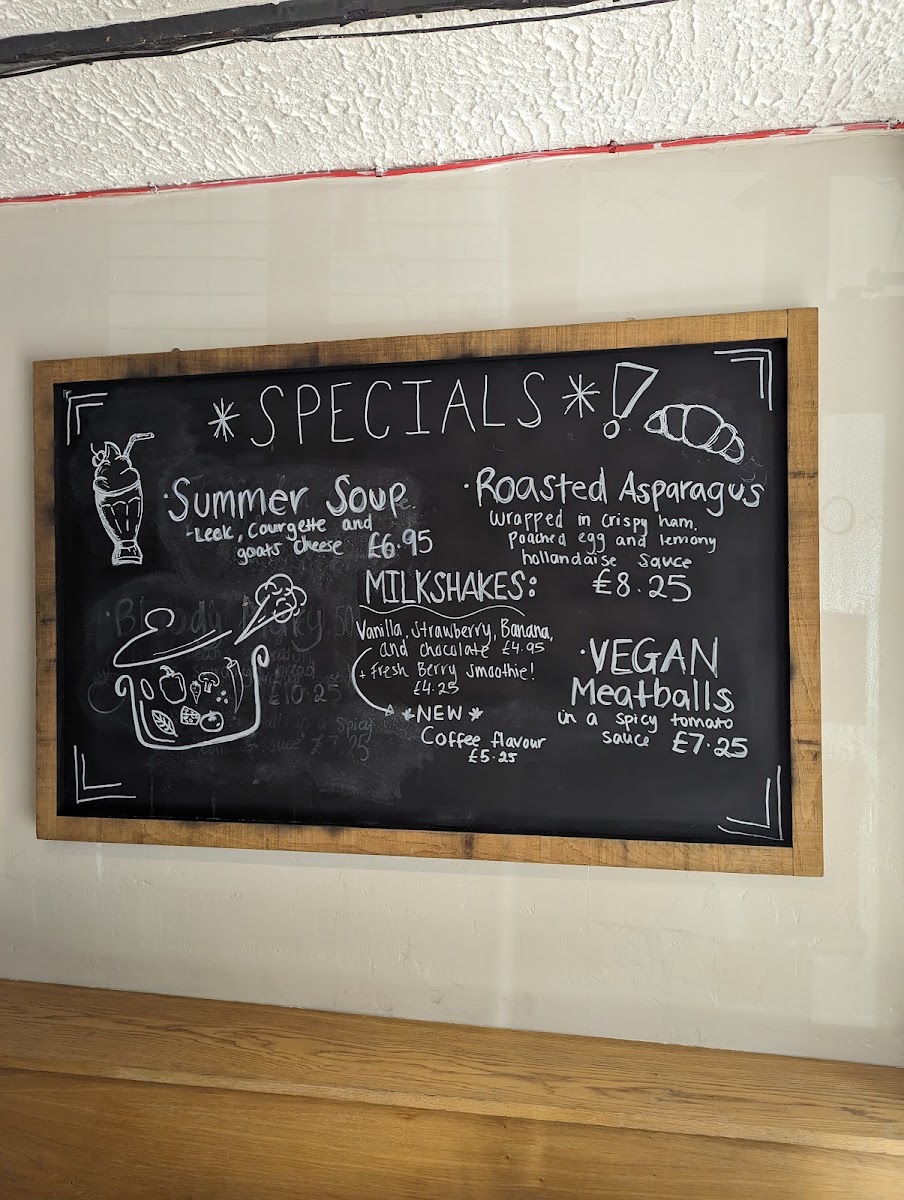 * SPECIALS * !
· Summer Soup
- Leek, Courgette and
goats cheese £6.95
· Roasted Asparagus
wrapped in crispy ham,
poached egg and lemony
hollandaise sauce
£8.25
MILKSHAKES:
Vanilla, Strawberry, Banana,
and chocolate £4.95
+ Fresh Berry Smoothie!
£4.25
*NEW*
Coffee flavour
£5.25
· VEGAN
Meatballs
in a spicy tomato
sauce £7.25
£10.25
Spicy